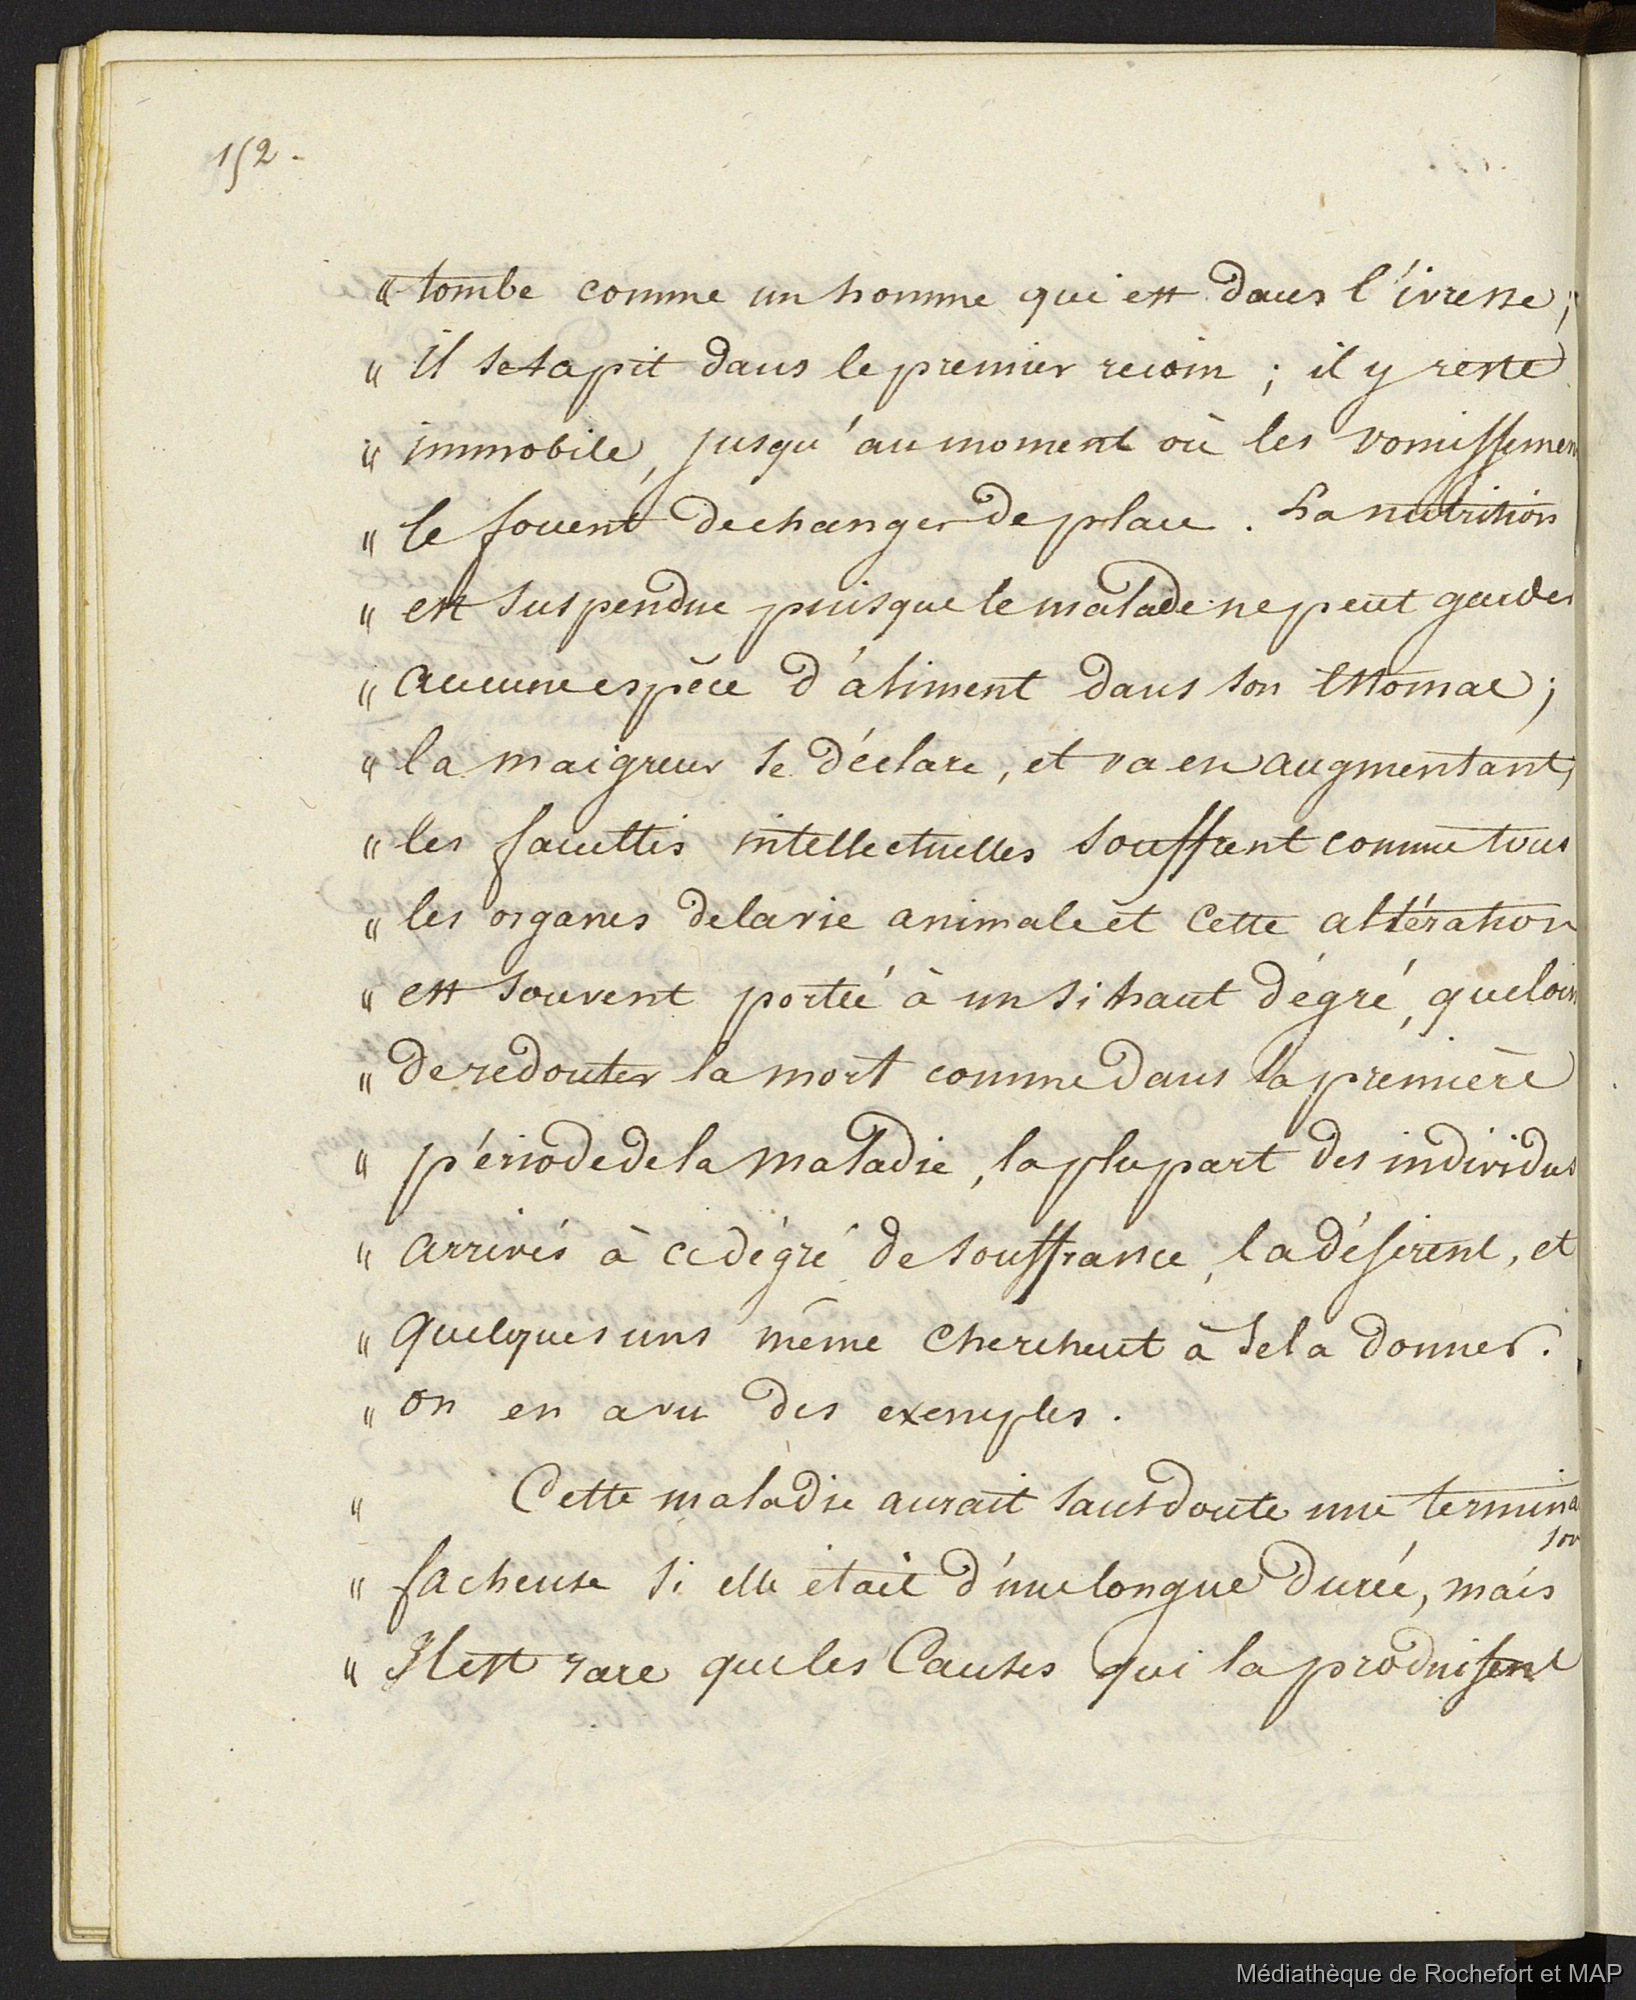 152.
" tombe comme un homme qui est dans l'ivresse;
" il se tapit dans le premier recoin; il y reste
" immobile, jusqu'au moment où les vomissemen
" le forcent de changer de place. La nutrition
" est suspendue puisque le malade ne peut garder
" aucune espèce d'aliment dans son estomac;
" la maigreur se déclare, et va en augmentant;
" les facultés intellectuelles souffrent comme tous
" les organes de la vie animale et cette altération
" est souvent portée à un si haut dégré, que loin
" de redouter la mort comme dans la première
" période de la maladie, la plupart des individus
" arrivés à ce dégré de souffrance, la désirent, et
" quelques uns même cherchent à se la donner.
" on en a vu des exemples.
" Cette maladie aurait sans doute une termina
son
" facheuse si elle était d'une longue durée, mais
" Il est rare que les Causes qui la produisent
Médiathèque de Rochefort et MAP